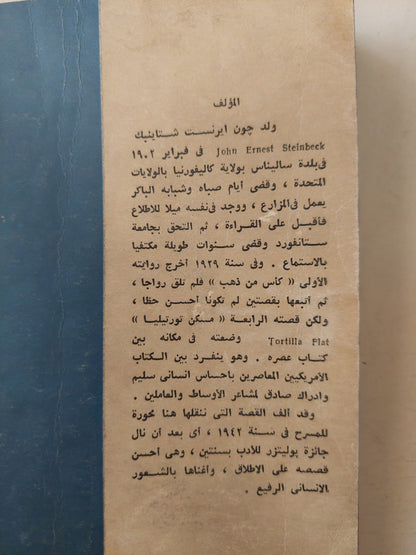 المؤلف
ولد چون ايرنست شتاينبك
John Ernest Steinbeck فى فبراير ١٩٠٢
فى بلدة ساليناس بولاية كاليفورنيا بالولايات
المتحدة ، وقضى أيام صباه وشبابه الباكر
يعمل فى المزارع ، ووجد فى نفسه ميلا للاطلاع
فأقبل على القراءة ، ثم التحق بجامعة
ستانفورد وقضى سنوات طويلة مكتفيا
بالاستماع . وفى سنة ١٩٢٩ أخرج روايته
الأولى « كأس من ذهب » فلم تلق رواجا ،
ثم أتبعها بقصتين لم تكونا أحسن حظا ،
ولكن قصته الرابعة « مسكن تورتيليا »
Tortilla Flat وضعته فى مكانه بين
كتاب عصره . وهو ينفرد بين الكتاب
الأمريكيين المعاصرين باحساس انسانى سليم
وادراك صادق لمشاعر الأوساط والعاملين .
وقد ألف القصة التى ننقلها هنا محورة
للمسرح فى سنة ١٩٤٢ ، أى بعد أن نال
جائزة پوليتزر للأدب بسنتين ، وهى أحسن
قصصه على الاطلاق ، وأغناها بالشعور
الانسانى الرفيع .